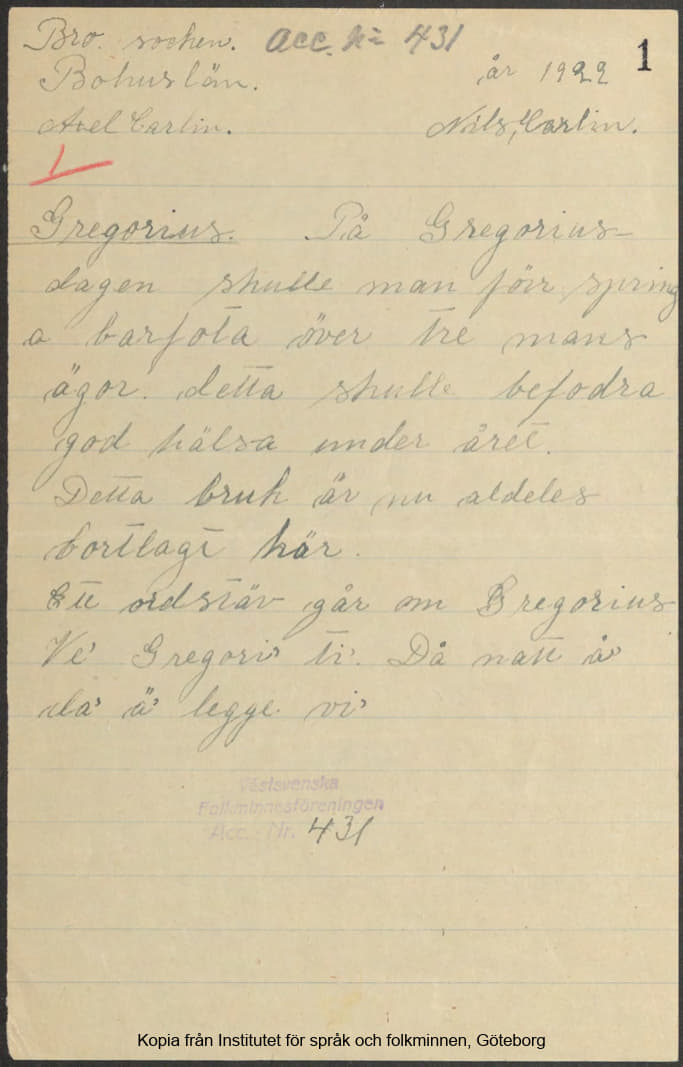 Bro. socken. Acc. Nr 431
Bohuslän. år 1922 1
Axel Carlin. Nils, Carlin.
Gregorius. På Gregorius-
dagen skulle man förr spring
a barfota över tre mans
ägor. detta skulle befodra
god hälsa under året.
Detta bruk är nu aldeles
bortlagt här.
Ett ordstäv går om Gregorius
Ve' Gregori' ti'. Då natt å'
da' ä' legge vi'
Västsvenska
Folkminnesföreningen
Acc. Nr. 431
Kopia från Institutet för språk och folkminnen, Göteborg